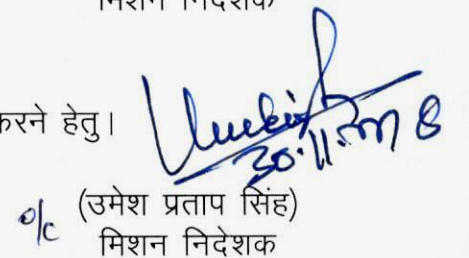 मिशन निदेशक
करने हेतु।
30.11.2018
o/c (उमेश प्रताप सिंह)
मिशन निदेशक